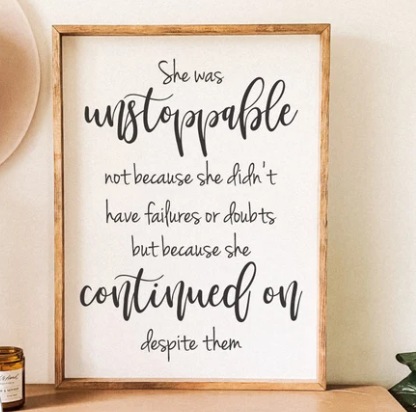 She was
unstoppable
not because she didn't
have failures or doubts
but because she
continued on
despite them